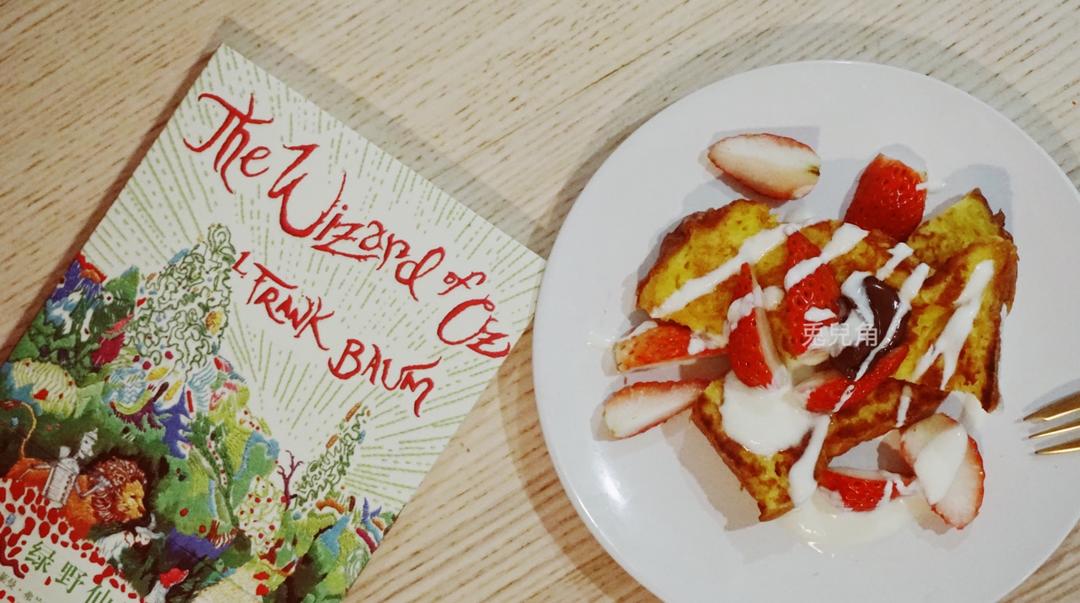 The Wizard of Oz
L FRANK BAUM
绿野仙
兎兒角